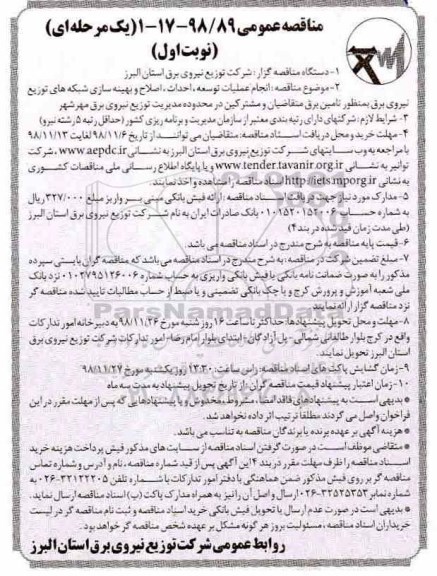 مناقصه عمومی ۹۸/۸۹-۱۷-۱(یک مرحله ای)
(نوبت اول)
۱- دستگاه مناقصه گزار: شرکت توزیع نیروی برق استان البرز
۲-موضوع مناقصه: انجام عملیات توسعه، احداث، اصلاح و بهینه سازی شبکه های توزیع
نیروی برق بمنظور تامین برق متقاضیان و مشترکین در محدوده مدیریت توزیع نیروی برق مهرشهر
۳- شرایط لازم: شرکتهای دارای رتبه بندی معتبر از سازمان مدیریت و برنامه ریزی کشور (حداقل رتبه ۵ رشته نیرو)
۴- مهلت خرید و محل دریافت اسناد مناقصه: متقاضیان می توانند از تاریخ ۹۸/۱۱/۶ لغایت ۹۸/۱۱/۱۳
با مراجعه به وب سایتهای شرکت توزیع نیروی برق استان البرز به نشانی www.aepdc.ir ، شرکت
توانیر به نشانی www.tender.tavanir.org.ir و یا پایگاه اطلاع رسانی ملی مناقصات کشوری
به نشانی http://iets.mporg.ir اسناد مناقصه را مشاهده و اخذ نمایند.
۵- مدارک مورد نیاز جهت خرید اسناد مناقصه: ارائه فیش بانکی مبنی بر واریز مبلغ ۳۲۷/۰۰۰ ریال
به شماره حساب ۰۱۰۱۵۲۰۱۵۲۰۰۶ بانک صادرات ایران به نام شرکت توزیع نیروی برق استان البرز
(طی مدت زمان قید شده در بند ۴)
۶- قیمت پایه مناقصه به شرح مندرج در اسناد مناقصه می باشد.
۷- مبلغ تضمین شرکت در مناقصه: به شرح مندرج در اسناد مناقصه می باشد که مناقصه گران بایستی سپرده
مذکور را به صورت ضمانت نامه بانکی یا فیش بانکی واریزی به حساب شماره ۰۱۰۲۷۹۵۱۲۶۰۰۶ نزد بانک
ملی شعبه آموزش و پرورش کرج و یا چک بانکی تضمینی و یا ضبط از حساب مطالبات تایید شده مناقصه گر
نزد مناقصه گزار ارائه نمایند.
۸- مهلت و محل تحویل پیشنهادها: حداکثر تا ساعت ۱۶ روز شنبه مورخ ۹۸/۱۱/۲۶ به دبیرخانه امور تدارکات
واقع در کرج بلوار طالقانی شمالی - پل آزادگان - ابتدای بلوار امام رضا- امور تدارکات شرکت توزیع نیروی برق
استان البرز تحویل نمایند.
۹- زمان گشایش پاکت های اسناد مناقصه: راس ساعت ۱۳:۳۰ روز یکشنبه مورخ ۹۸/۱۱/۲۷
۱۰- زمان اعتبار پیشنهاد قیمت مناقصه گران: از تاریخ تحویل پیشنهاد به مدت سه ماه
* بدیهی است به پیشنهادهای فاقد امضا، مشروط، مخدوش و پیشنهادهایی که پس از مهلت مقرر در این
فراخوان واصل می گردند مطلقا ترتیب اثر داده نخواهد شد.
* هزینه آگهی بر عهده برنده یا برندگان مناقصه به تناسب می باشد.
* متقاضی موظف است در صورت گرفتن اسناد مناقصه از سایت های مذکور فیش پرداخت هزینه خرید
اسناد مناقصه را ظرف مهلت مقرر در بند ۴ این آگهی پس از قید شماره مناقصه، نام و آدرس و شماره تماس
مناقصه گر بر روی فیش مذکور ضمن هماهنگی با دفتر امور تدارکات با شماره تلفن ۳۲۱۲۲۲۰۵-۰۲۶ به
شماره نمابر ۳۲۵۲۵۳۵۳-۰۲۶ ارسال و اصل آن را نیز به همراه مدارک پاکت (ب) اسناد مناقصه ارسال نماید.
* بدیهی است در صورت عدم ارسال یا تحویل فیش بانکی خرید اسناد مناقصه و ثبت نام مناقصه گر در لیست
خریداران اسناد مناقصه، مسئولیت بروز هر گونه مشکل بر عهده شخص مناقصه گر خواهد بود.
روابط عمومی شرکت توزیع نیروی برق استان البرز